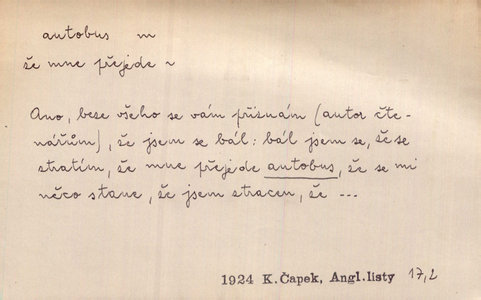 autobus m
že mne přejede ~
Ano, beze všeho se vám přiznám (autor čte-
nářům), že jsem se bál: bál jsem se, že se
ztratím, že mne přejede autobus, že se mi
něco stane, že jsem ztracen, že ---
1924 K.Čapek, Angl.listy 17,2